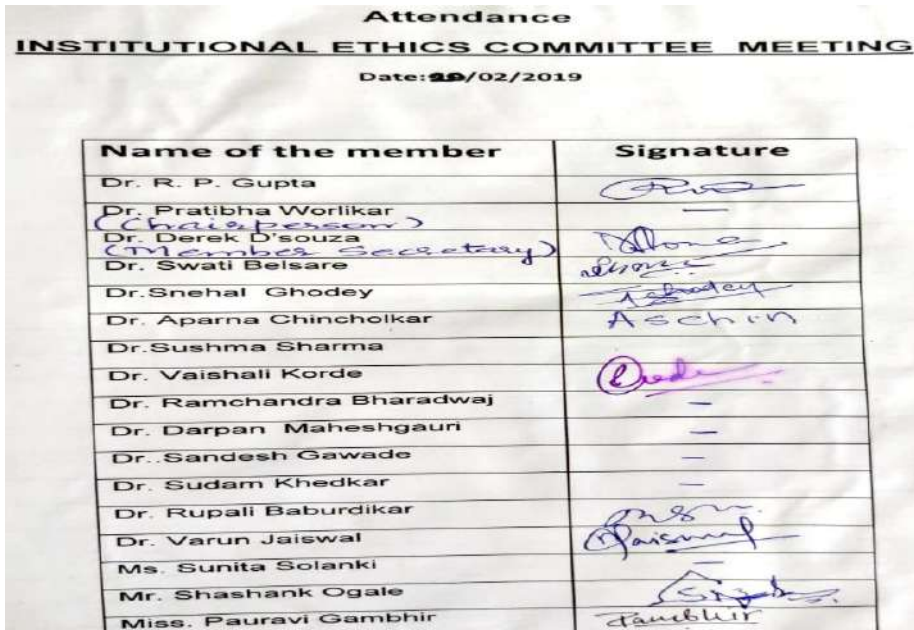 Attendance
INSTITUTIONAL ETHICS COMMITTEE MEETING
Date: /02/2019
Name of the member Signature
Dr. R. P. Gupta
Dr. Pratibha Worlikar —
(Chairperson)
Dr. Derek D'souza
(Member Secretary)
Dr. Swati Belsare
Dr.Snehal Ghodey
Dr. Aparna Chincholkar Aschin
Dr.Sushma Sharma
Dr. Vaishali Korde
Dr. Ramchandra Bharadwaj —
Dr. Darpan Maheshgauri —
Dr..Sandesh Gawade —
Dr. Sudam Khedkar —
Dr. Rupali Baburdikar
Dr. Varun Jaiswal Jaiswal
Ms. Sunita Solanki —
Mr. Shashank Ogale
Miss. Pauravi Gambhir Gambhir